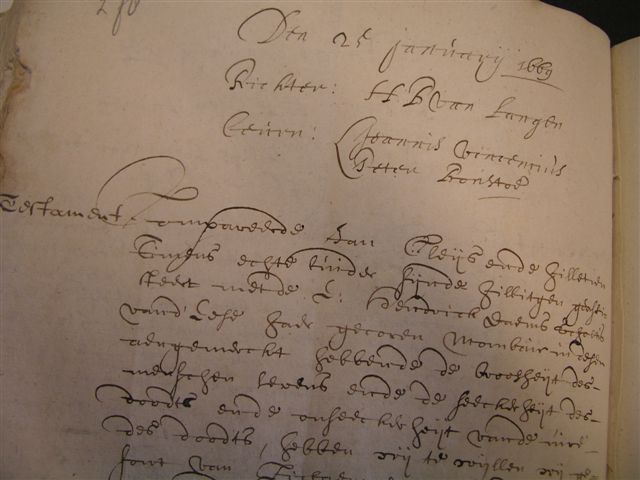 Den 25 januarij 1669
Richter: H B van Langen
Ceurn: Joannis Vincentius
Peter Bonstoe
Testament, Compareerde Jan Cleijs ende Jilleken
Simens echte luijden sijnde Jillitgen
steet met de E. Hendrick Daems Scholts
vand Lehe haer gecoren Mombair in desen
aengemerckt hebbende de broosheijt des-
menschen levens ende de seeckerheijt des-
doodts ende onseeckerheijt vande uire-
des doodts, hebben sij te willen sij ge-
van